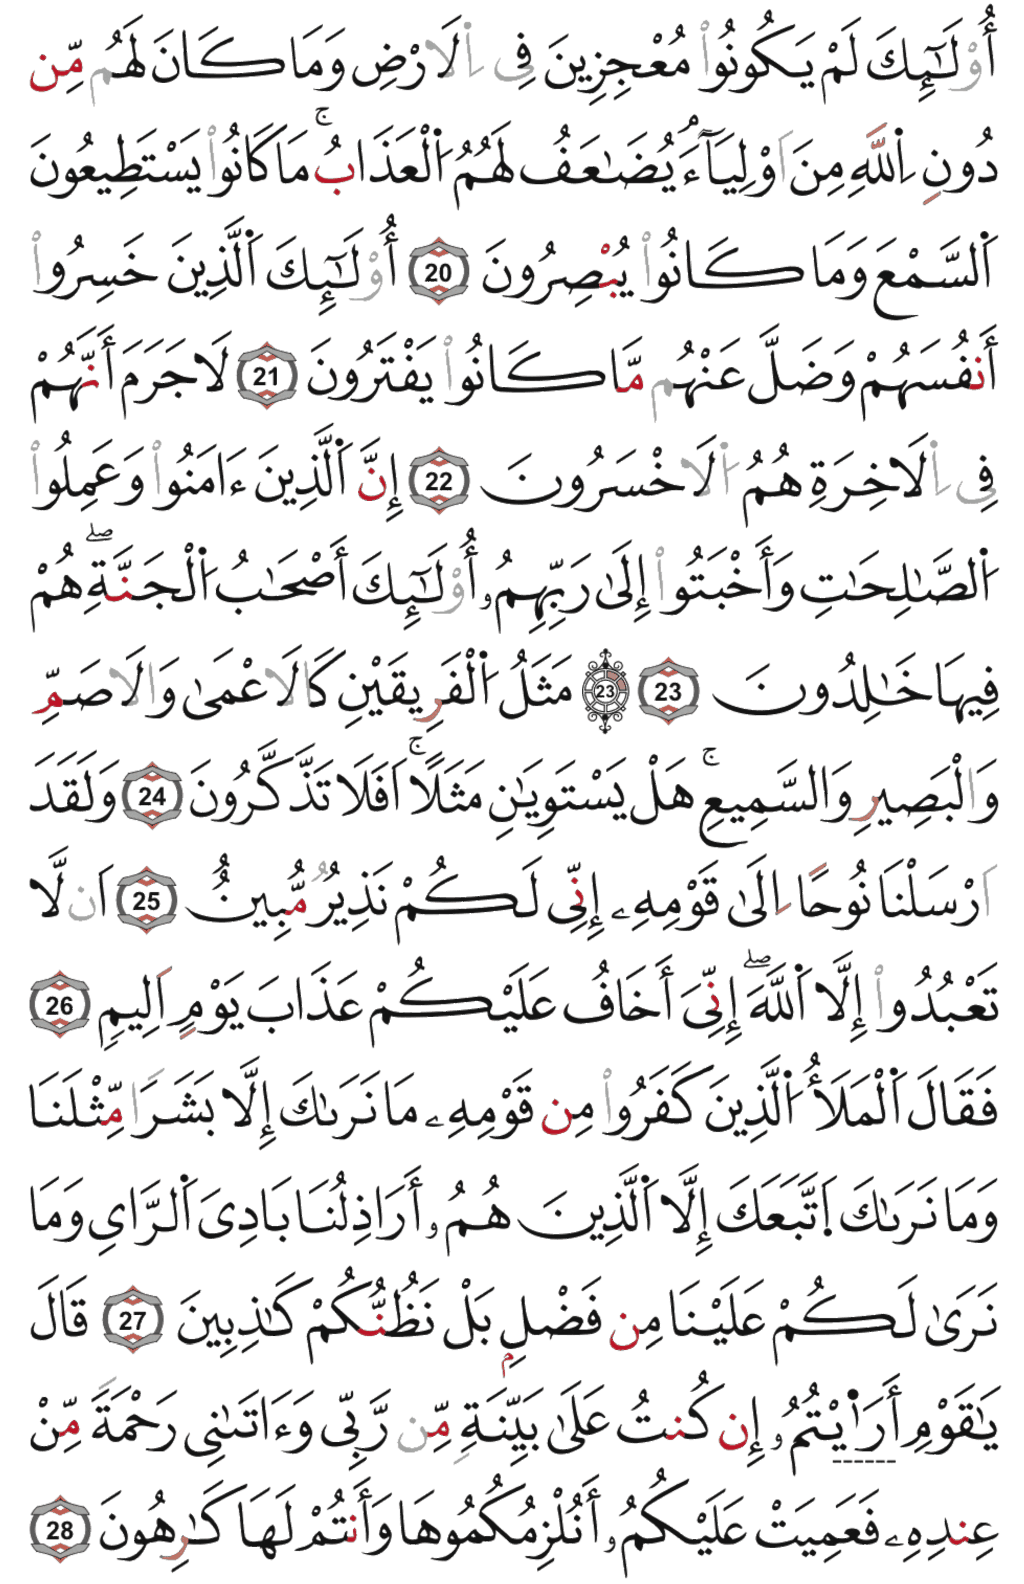 أُوْلَٰٓئِكَ لَمْ يَكُونُواْ مُعْجِزِينَ فِى اِ۬لَارْضِ وَمَا كَانَ لَهُم مِّن
دُونِ اِ۬للَّهِ مِنَ اَوْلِيَآءَۘ يُضَٰعَفُ لَهُمُ اُ۬لْعَذَابُۚ مَا كَانُواْ يَسْتَطِيعُونَ
اَ۬لسَّمْعَ وَمَا كَانُواْ يُبْصِرُونَ 20 أُوْلَٰٓئِكَ اَ۬لَّذِينَ خَسِرُواْ
أَنفُسَهُمْ وَضَلَّ عَنْهُم مَّا كَانُواْ يَفْتَرُونَ 21 لَا جَرَمَ أَنَّهُمْ
فِى اِ۬لَاخِرَةِ هُمُ اُ۬لَاخْسَرُونَ 22 إِنَّ اَ۬لَّذِينَ ءَامَنُواْ وَعَمِلُواْ
اُ۬لصَّٰلِحَٰتِ وَأَخْبَتُواْ إِلَىٰ رَبِّهِمُۥ أُوْلَٰٓئِكَ أَصْحَٰبُ اُ۬لْجَنَّةِۖ هُمْ
فِيهَا خَٰلِدُونَ 23 23 مَثَلُ اُ۬لْفَرِيقَيْنِ كَالَاعْمَىٰ وَالَاصَمِّ
وَالْبَصِيرِ وَالسَّمِيعِۚ هَلْ يَسْتَوِيَٰنِ مَثَلًاۚ اَفَلَا تَذَّكَّرُونَ 24 وَلَقَدَ
اَرْسَلْنَا نُوحًا اِلَىٰ قَوْمِهِۦ إِنِّى لَكُمْ نَذِيرٌ مُّبِينٌ 25 اَن لَّا
تَعْبُدُواْ إِلَّا اَ۬للَّهَۖ إِنِّىَ أَخَافُ عَلَيْكُمْ عَذَابَ يَوْمٍ اَلِيمٍ 26
فَقَالَ اَ۬لْمَلَأُ اُ۬لَّذِينَ كَفَرُواْ مِن قَوْمِهِۦ مَا نَرَىٰكَ إِلَّا بَشَرًا مِّثْلَنَا
وَمَا نَرَىٰكَ اَ۪تَّبَعَكَ إِلَّا اَ۬لَّذِينَ هُمُۥ أَرَاذِلُنَا بَادِىَ اَ۬لرَّايِ وَمَا
نَرَىٰ لَكُمْ عَلَيْنَا مِن فَضْلِۭ بَلْ نَظُنُّكُمْ كَٰذِبِينَ 27 قَالَ
يَٰقَوْمِ أَرَا۬يْتُمُۥ إِن كُنتُ عَلَىٰ بَيِّنَةٍ مِّن رَّبِّى وَءَاتَىٰنِى رَحْمَةً مِّنْ
عِندِهِۦ فَعَمِيَتْ عَلَيْكُمُۥ أَنُلْزِمُكُمُوهَا وَأَنتُمْ لَهَا كَٰرِهُونَ 28